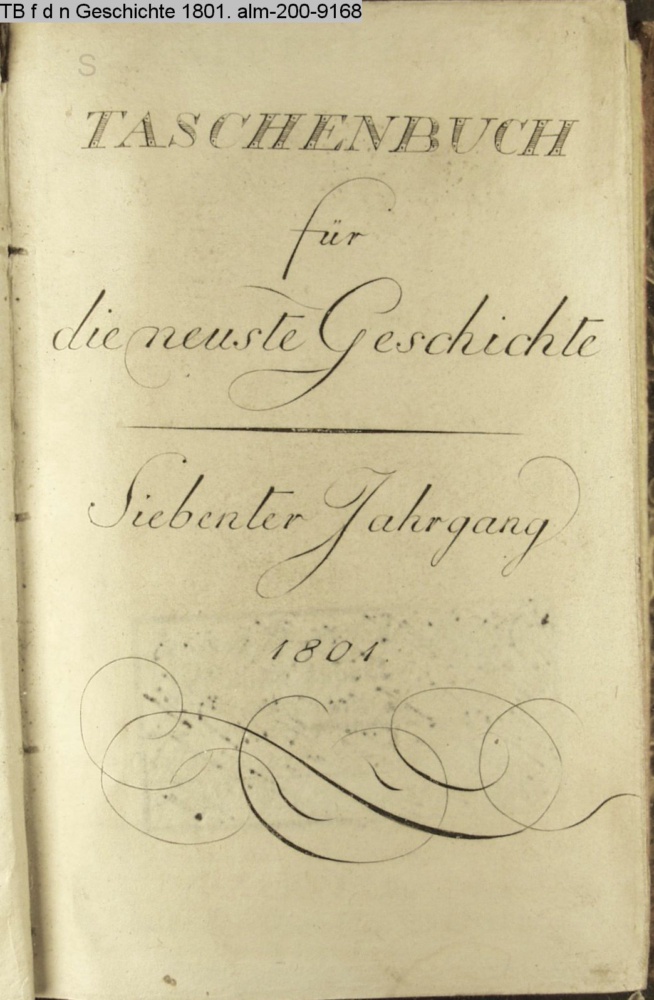 TB f d n Geschichte 1801. alm-200-9168
S
TASCHENBUCH
für
die neuste Geschichte
Siebenter Jahrgang
1801.